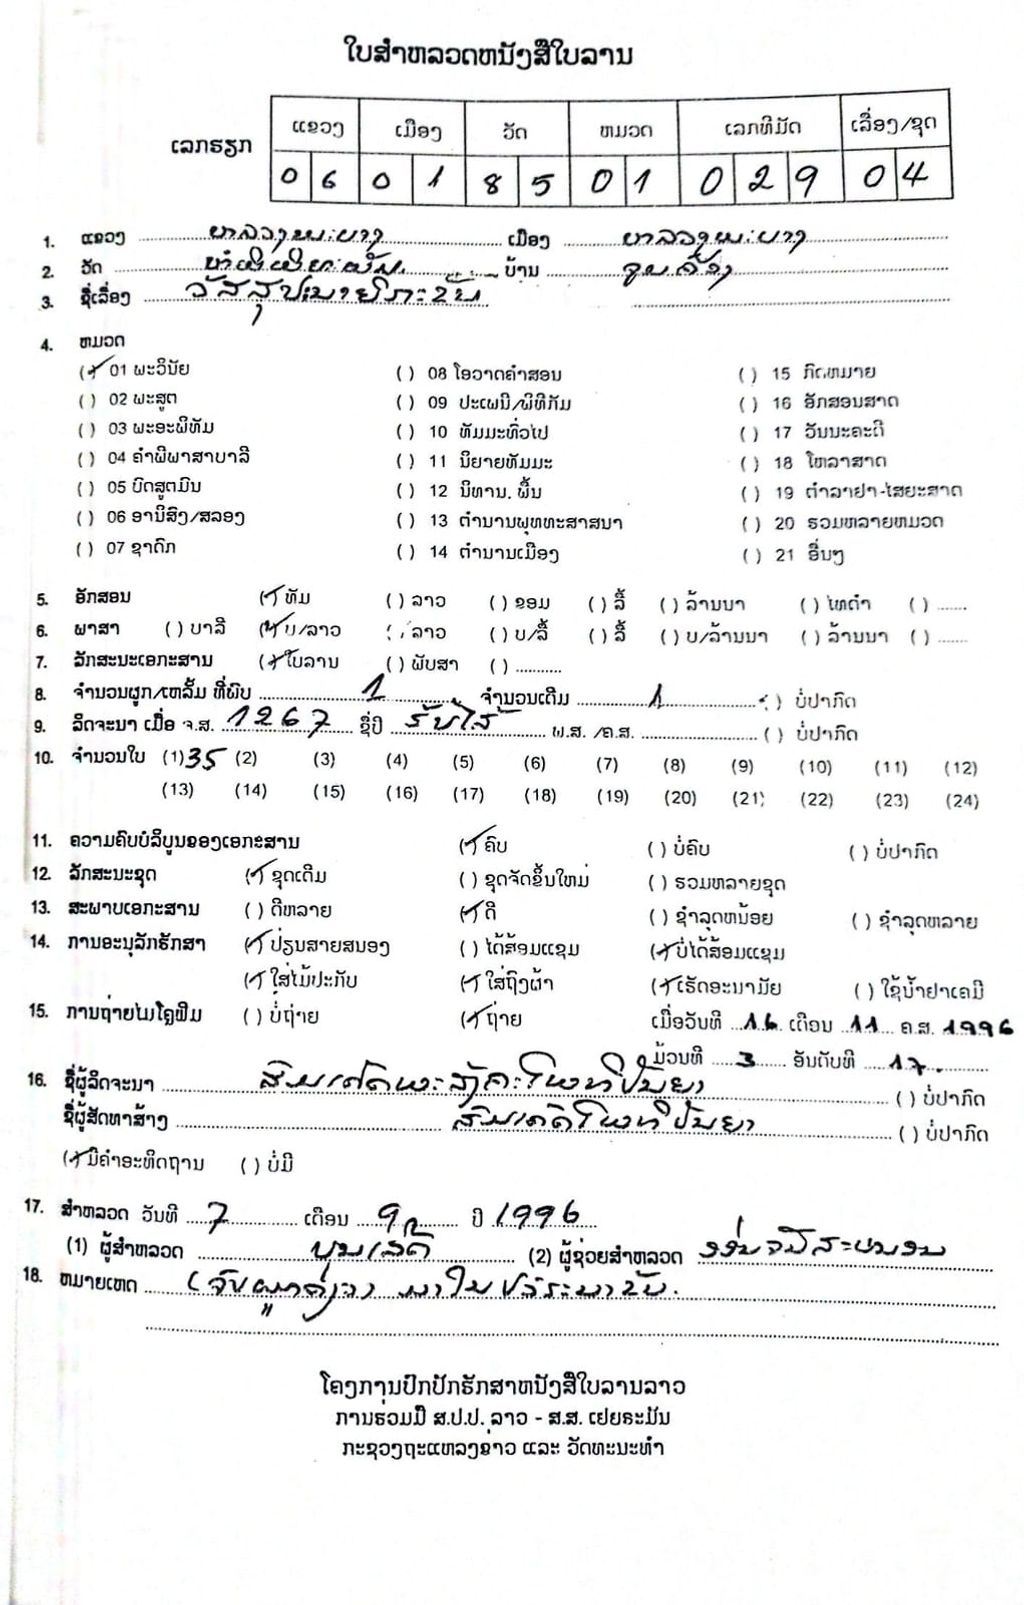 ໃບສຳຫລວດຫນັງສືໃບລານ
ເລກຮຽກ ແຂວງ ເມືອງ ວັດ ຫມວດ ເລກທີມັດ ເລື່ອງ/ຊຸດ
0 6 0 1 8 5 0 1 0 2 9 0 4
1. ແຂວງ ເມືອງ
2. ວັດ ບ້ານ
3. ຊື່ເລື່ອງ
4. ຫມວດ
(✓) 01 ພະວິນັຍ ( ) 08 ໂອວາດຄຳສອນ ( ) 15 ກົດຫມາຍ
( ) 02 ພະສູດ ( ) 09 ປະເພນີ/ພິທີກັມ ( ) 16 ອັກສອນສາດ
( ) 03 ພະອະພິທັມ ( ) 10 ທັມມະທົ່ວໄປ ( ) 17 ວັນນະຄະດີ
( ) 04 ຄຳພີພາສາບາລີ ( ) 11 ນິຍາຍທັມມະ ( ) 18 ໂຫລາສາດ
( ) 05 ບົດສູດມົນ ( ) 12 ນິທານ. ພື້ນ ( ) 19 ຕຳລາຢາ-ໄສຍະສາດ
( ) 06 ອານິສົງ/ສລອງ ( ) 13 ຕຳນານພຸທທະສາສນາ ( ) 20 ຮວມຫລາຍຫມວດ
( ) 07 ຊາດົກ ( ) 14 ຕຳນານເມືອງ ( ) 21 ອື່ນໆ
5. ອັກສອນ (✓) ທັມ ( ) ລາວ ( ) ຂອມ ( ) ລື້ ( ) ລ້ານນາ ( ) ໄທດຳ ( ) ......
6. ພາສາ ( ) ບາລີ (✓) ບ/ລາວ ( ) ລາວ ( ) ບ/ລື້ ( ) ລື້ ( ) ບ/ລ້ານນາ ( ) ລ້ານນາ ( ) ......
7. ລັກສະນະເອກະສານ (✓) ໃບລານ ( ) ພັບສາ ( ) .........
8. ຈຳນວນຜູກ/ເຫລັ້ມ ທີ່ພົບ 1 ຈຳນວນເດີມ 1 ( ) ບໍ່ປາກົດ
9. ລິດຈະນາ ເມື່ອ ຈ.ສ. 1267 ຊື່ປີ ຮັບໄສ້ ພ.ສ. /ຄ.ສ. ( ) ບໍ່ປາກົດ
10. ຈຳນວນໃບ (1) 35 (2) (3) (4) (5) (6) (7) (8) (9) (10) (11) (12)
(13) (14) (15) (16) (17) (18) (19) (20) (21) (22) (23) (24)
11. ຄວາມຄົບບໍລິບູນຂອງເອກະສານ (✓) ຄົບ ( ) ບໍ່ຄົບ ( ) ບໍ່ປາກົດ
12. ລັກສະນະຊຸດ (✓) ຊຸດເດີມ ( ) ຊຸດຈັດຂຶ້ນໃຫມ່ ( ) ຮວມຫລາຍຊຸດ
13. ສະພາບເອກະສານ ( ) ດີຫລາຍ (✓) ດີ ( ) ຊຳລຸດຫນ້ອຍ ( ) ຊຳລຸດຫລາຍ
14. ການອະນຸລັກຮັກສາ (✓) ປ່ຽນສາຍສນອງ ( ) ໄດ້ສ້ອມແຊມ (✓) ບໍ່ໄດ້ສ້ອມແຊມ
(✓) ໃສ່ໄມ້ປະກັບ (✓) ໃສ່ຖົງຜ້າ (✓) ເຮັດອະນາມັຍ ( ) ໃຊ້ນ້ຳຢາເຄມີ
15. ການຖ່າຍໄມໂຄຼຟີມ ( ) ບໍ່ຖ່າຍ (✓) ຖ່າຍ ເມື່ອວັນທີ 16 ເດືອນ 11 ຄ.ສ. 1996
ມ້ວນທີ 3 ອັນດັບທີ 17.
16. ຊື່ຜູ້ລິດຈະນາ ( ) ບໍ່ປາກົດ
ຊື່ຜູ້ສັດທາສ້າງ ( ) ບໍ່ປາກົດ
(✓) ມີຄຳອະທິດຖານ ( ) ບໍ່ມີ
17. ສຳຫລວດ ວັນທີ 7 ເດືອນ ປີ 1996
(1) ຜູ້ສຳຫລວດ ບຸນເລີດ (2) ຜູ້ຊ່ອຍສຳຫລວດ
18. ຫມາຍເຫດ
ໂຄງການປົກປັກຮັກສາຫນັງສືໃບລານລາວ
ການຮ່ວມມື ສ.ປ.ປ. ລາວ - ສ.ສ. ເຢຍຣະມັນ
ກະຊວງຖະແຫລງຂ່າວ ແລະ ວັດທະນະທຳ